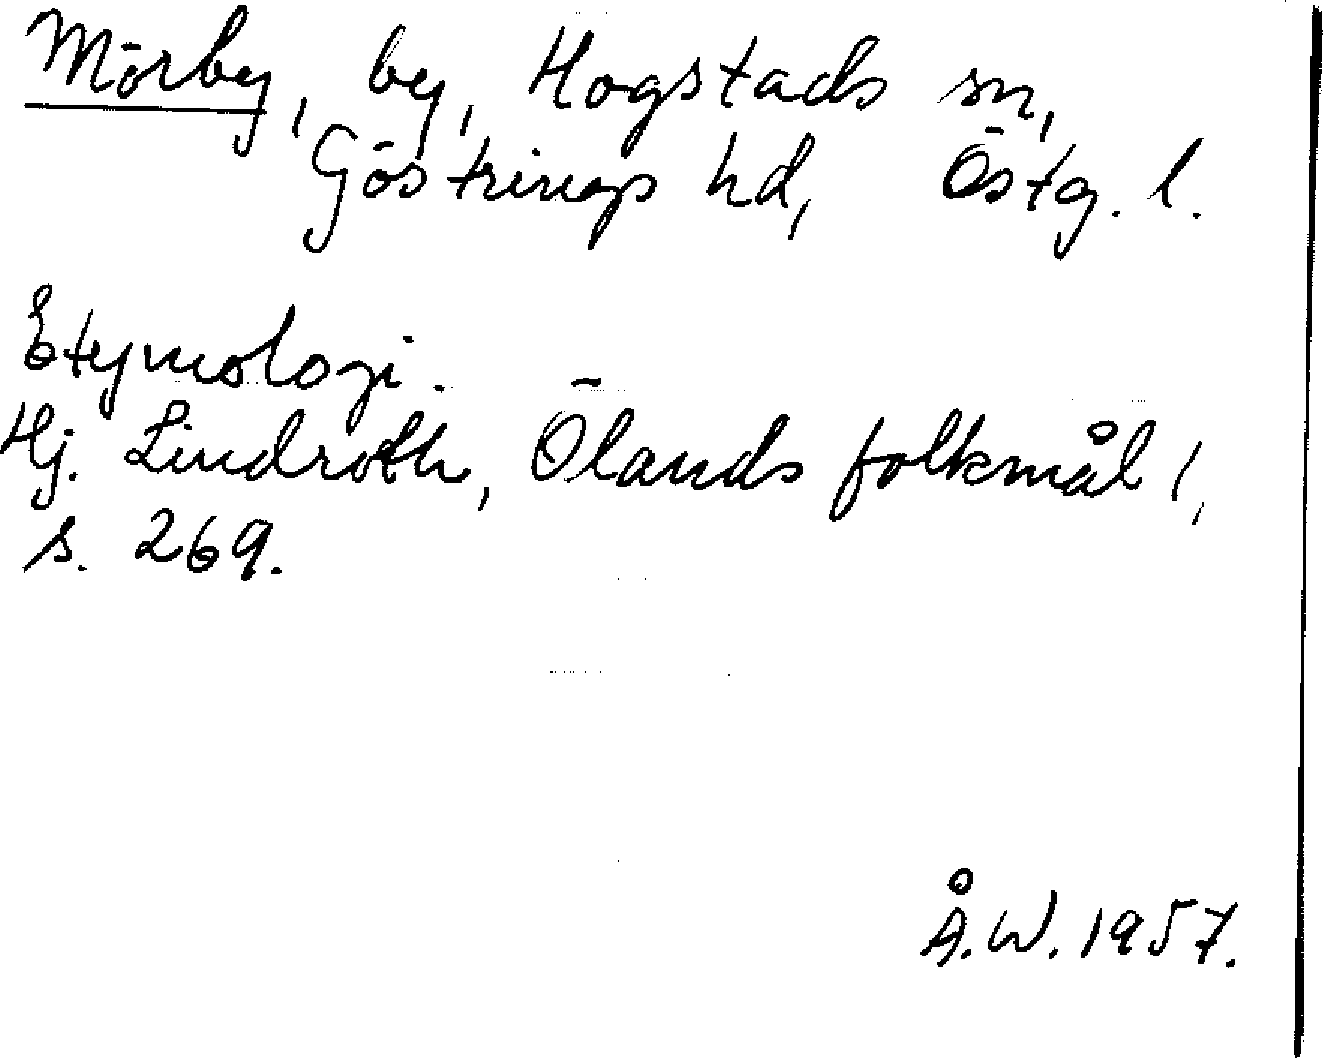 Mörby, by, Hogstads sn,
Göstrings hd, Östg. l.
Etymologi.
Hj. Lindroth, Ölands folkmål 1,
s. 269.
Å.W. 1957.